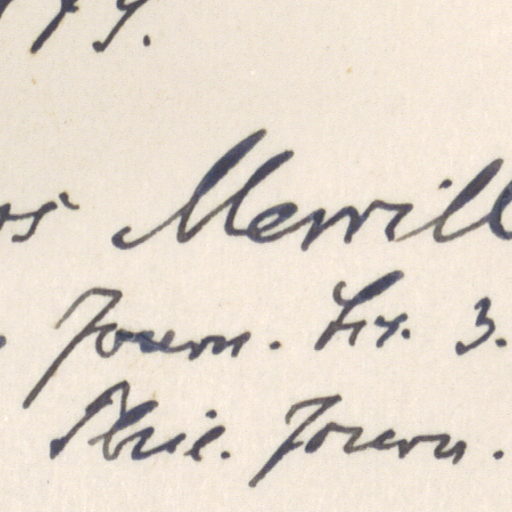 79.
os Merrill
Journ. Sci. 3.
Phil. Journ.